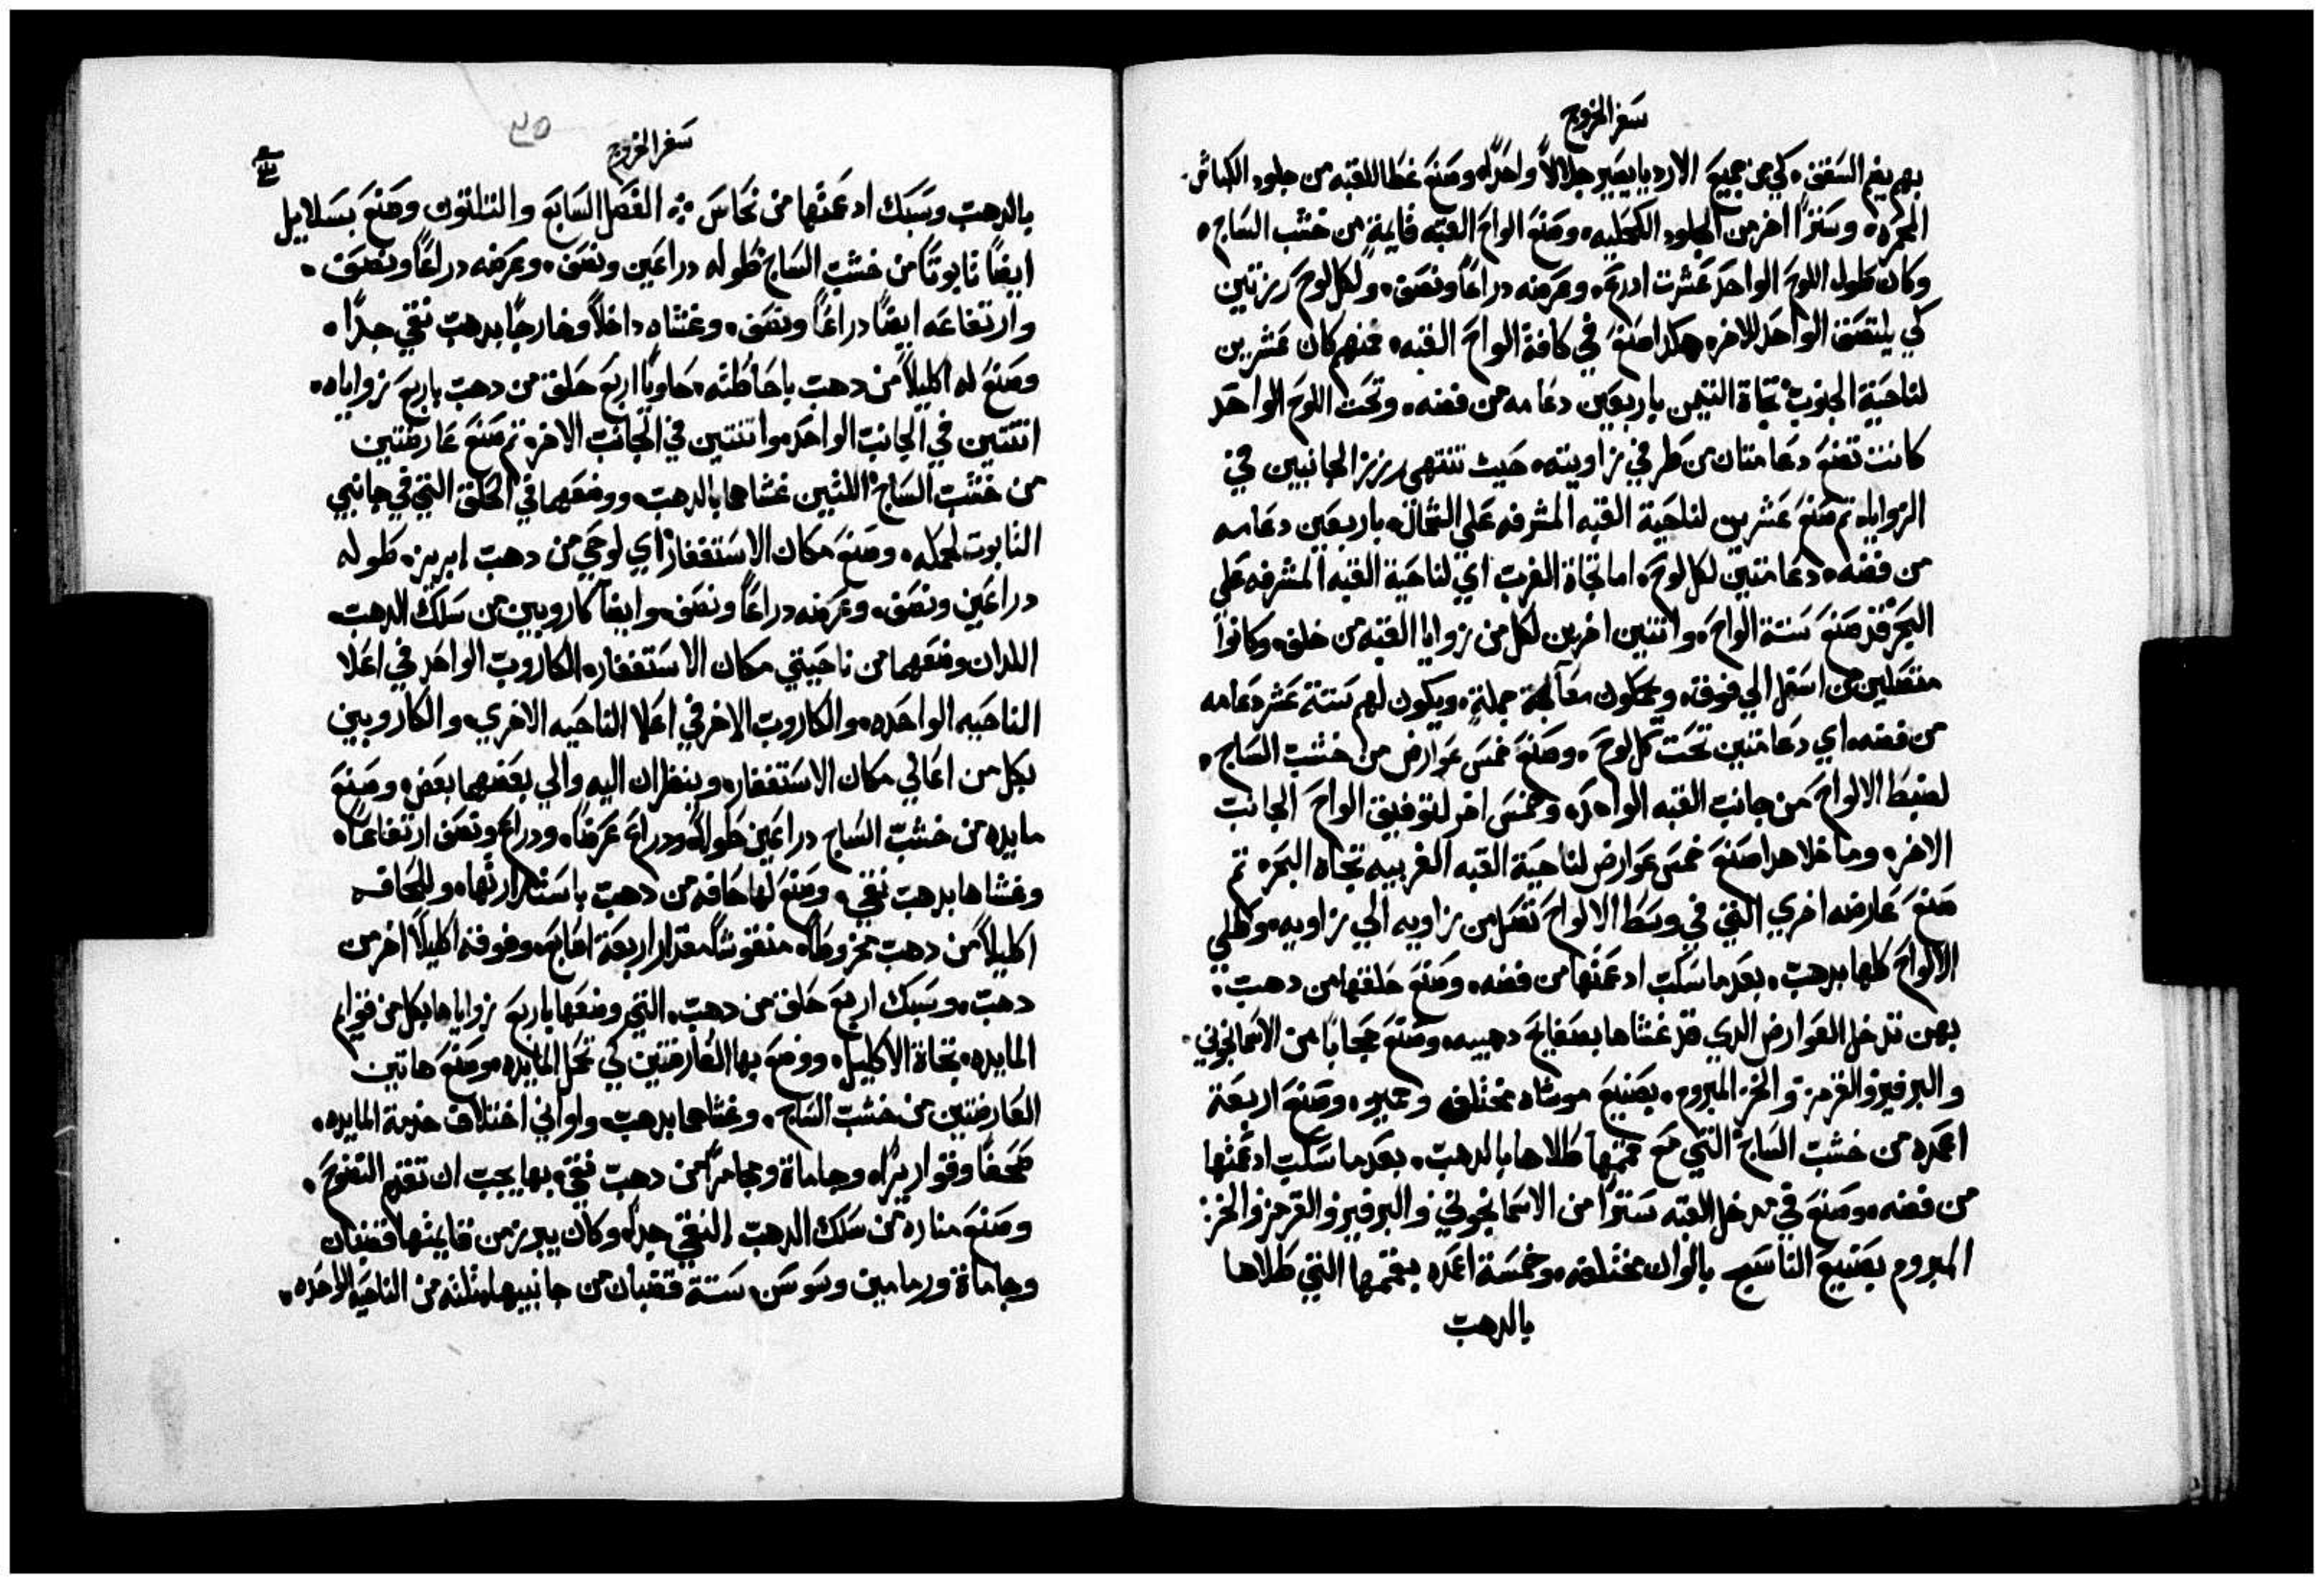 سفر الخروج
بهم يضم السقف، كي من جميع الارديا يصير جلالاً واحداً، وصنع غطا للقبه من جلود الكباش
المحمره، وستراً اخر من الجلود الكحليه، وصنع الواح القبه قايمة من خشب الساج،
وكان طول اللوح الواحد عشرت ادرع، وعرضه دراعاً ونصف، ولكل لوح رزتين
كي يلتصق الواحد للاخر، هكدا صنع في كافة الواح القبه، فمنهم كان عشرين
لناحية الجنوب تجاة التيمن باربعين دعامه من فضه، وتحت اللوح الواحد
كانت تضع دعامتان من طرفي زاويته، حيث تنتهي رزز الجانبين في
الزوايا، تم صنع عشرين لناحية القبه المشرفه علي الشمال، باربعين دعامه
من فضه، دعامتين لكل لوح، اما تجاة الغرب اي لناحية القبه المشرفه علي
البحر فقد صنع ستة الواح، واتنين اخرين لكل من زوايا القبه من خلف، وكانوا
متصلين من اسفل الي فوق، ويكون لهم ستة عشر دعامه
من فضه، اي دعامتين تحت كل لوح، وصنع خمس عوارض من خشب الساج،
لضبط الالواح من جانب القبه الواحد، وخمس اخر لتوفيق الواح الجانب
الاخر، وما خلا هدا صنع خمس عوارض لناحية القبه الغربيه تجاه البحر، تم
صنع عارضه اخري التي في وسط الالواح تصل من زاويه الي زاويه، وطلي
الالواح كلها بدهب، بعدما سكب ادعمتها من فضه، وصنع حلقها من دهب
بهن تدخل العوارض الدي قد غشاها بصفايح دهبيه، وصنع حجاباً من الاسمانجوني
والبرفير والقرمز والخز المبروم، بصنيع موشاه مختلف وحميد، وصنع اربعة
اعمده من خشب الساج التي مع قممها طلاها بالدهب، بعدما سكب ادعمتها
من فضه، وصنع في مدخل القبه ستراً من الاسمانجوني والبرفير والقرمز والخز
المبروم بصنيع الناسج بالوان مختلفه، وخمسة اعمده بقممها التي طلاها
بالدهب
سفر الخروج
بالدهب وسبك ادعمتها من نحاس ❖ الفصل السابع والتلاتون وصنع بسلاييل
ايضاً تابوتاً من خشب الساج طوله دراعين ونصف، وعرضه دراعاً ونصف،
وارتفاعه ايضاً دراعاً ونصف، وغشاه داخلاً وخارجاً بدهب نقي جداً،
وصنع له اكليلاً من دهب باحاطته، حاوياً اربع حلق من دهب باربع زواياه،
اتنتين في الجانب الواحد واتنتين في الجانب الاخر، تم صنع عارضتين
من خشب الساج اللتين غشاهما بالدهب، ووضعهما في الحلق التي في جانبي
التابوت لحمله، وصنع مكان الاستغفار اي لوحي من دهب ابريز، طوله
دراعين ونصف، وعرضه دراعاً ونصف، وايضاً كاروبين من سلك الدهب،
اللدان وضعهما من ناحيتي مكان الاستغفار، الكاروب الواحد في اعلا
الناحيه الواحده، والكاروب الاخر في اعلا الناحيه الاخري، والكاروبين
بكل من اعالي مكان الاستغفار، وينظران اليه والي بعضهما بعض، وصنع
مايده من خشب الساج دراعين طولاً، ودراع عرضاً، ودراع ونصف ارتفاعاً،
وغشاها بدهب نقي، وصنع لها حافه من دهب باستدارتها، وللحافه
اكليلاً من دهب مخروطاً، منقوشاً مقدار اربعة اصابع، وفوقه اكليلاً اخر من
دهب، وسبك اربع حلق من دهب، التي وضعها باربع زواياها بكل من قوايم
المايده، تجاة الاكليل، ووضع بها العارضتين كي تحمل المايده، وصنع هاتين
العارضتين من خشب الساج، وغشاهما بدهب، واواني اختلاف خدمة المايده،
صحفاً وقواريراً، وجاماة ومجامراً من دهب نقي، بها يجب ان تقدم النضوح،
وصنع مناره من سلك الدهب النقي جداً، وكان يبرز من قايمتها قضبان
وجاماة ورمامين وسوسن، ستة قضبان من جانبيها، تلته من الناحيه الواحده،